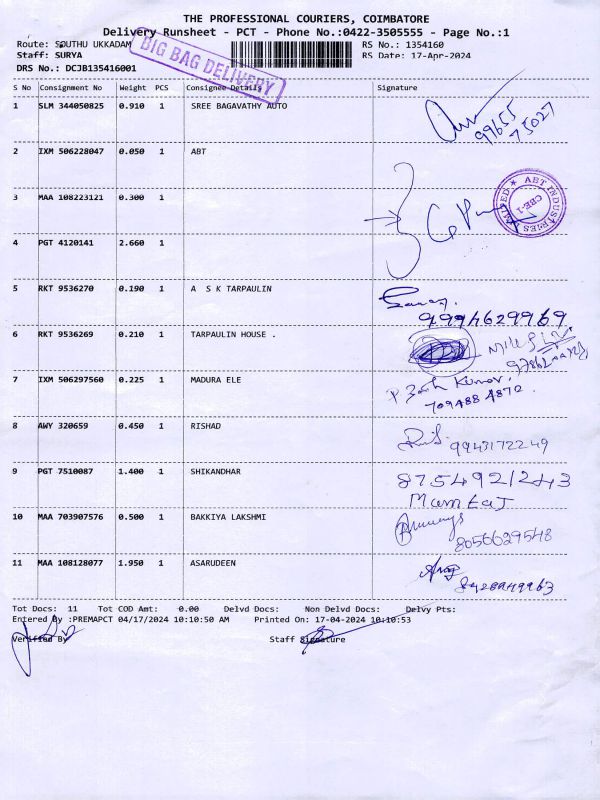 THE PROFESSIONAL COURIERS, COIMBATORE
Delivery Runsheet - PCT - Phone No.:0422-3505555 - Page No.:1
Route: SOUTHU UKKADAM RS No.: 1354160
Staff: SURYA RS Date: 17-Apr-2024
DRS No.: DCJB135416001
BIG BAG DELIVERY
S No Consignment No Weight PCS Consignee Details Signature
1 SLM 344050825 0.910 1 SREE BAGAVATHY AUTO
99655
75027
2 IXM 506228047 0.050 1 ABT
ABT INDUSTRIES LIMITED
CBE-1
3 MAA 108223121 0.300 1
4 PGT 4120141 2.660 1
5 RKT 9536270 0.190 1 A S K TARPAULIN
9994629969
6 RKT 9536269 0.210 1 TARPAULIN HOUSE .
7 IXM 506297560 0.225 1 MADURA ELE
Kumar,
709488 4870.
8 AWY 320659 0.450 1 RISHAD
9943172249
9 PGT 7510087 1.400 1 SHIKANDHAR
8754921243
Mumtaj
10 MAA 703907576 0.500 1 BAKKIYA LAKSHMI
8056629548
11 MAA 108128077 1.950 1 ASARUDEEN
Tot Docs: 11 Tot COD Amt: 0.00 Delvd Docs: Non Delvd Docs: Delvy Pts:
Entered By :PREMAPCT 04/17/2024 10:10:50 AM Printed On: 17-04-2024 10:10:53
Verified By Staff Signature